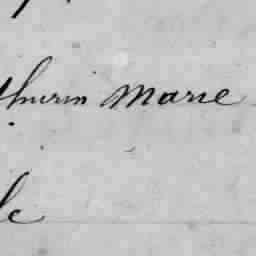 thurin Marie
le